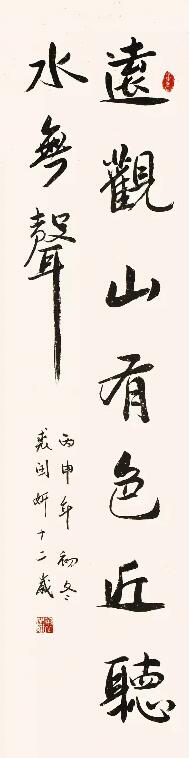 遠觀山有色近聽
水無聲
丙申年初冬
裘國妍十二歲